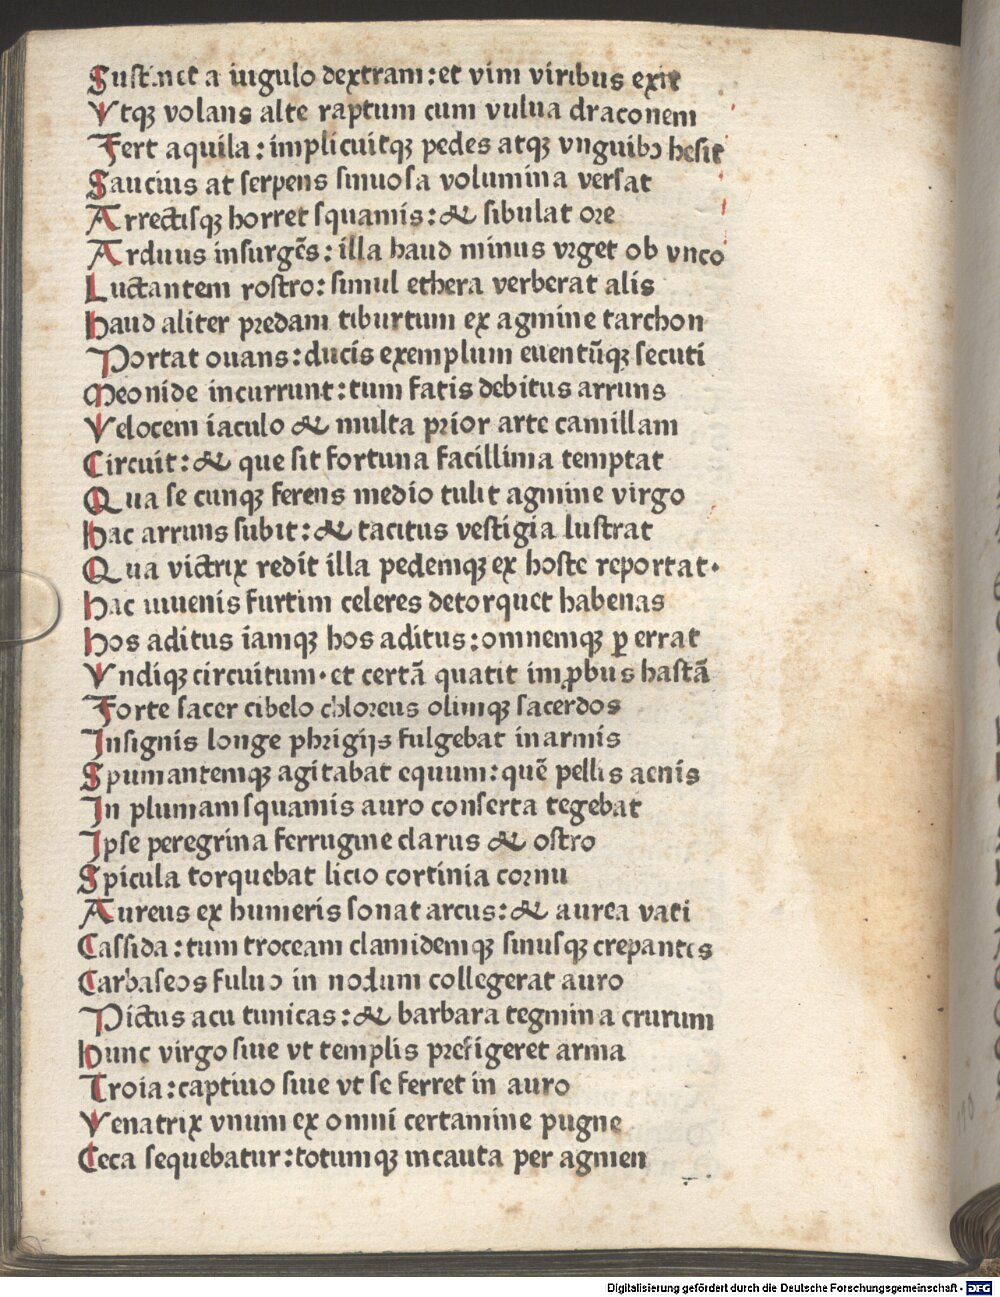 Sustinet a iugulo dextram: et vim viribus exit
Vtqꝫ volans alte raptum cum vulua draconem
Fert aquila: implicuitqꝫ pedes atqꝫ vnguibꝰ hesit
Saucius at serpens sinuosa volumina versat
Arrectisqꝫ horret squamis: & sibulat ore
Arduus insurgēs: illa haud minus vrget ob vnco
Luctantem rostro: simul ethera verberat alis
haud aliter predam tiburtum ex agmine tarchon
Portat ouans: ducis exemplum euentūqꝫ secuti
Meonide incurrunt: tum fatis debitus arruns
Velocem iaculo & multa prior arte camillam
Circuit: & que sit fortuna facillima temptat
Qua se cunqꝫ ferens medio tulit agmine virgo
hac arruns subit: & tacitus vestigia lustrat
Qua victrix redit illa pedemqꝫ ex hoste reportat·
hac iuuenis furtim celeres detorquet habenas
hos aditus iamqꝫ hos aditus: omnemqꝫ ꝑ errat
Vndiqꝫ circuitum· et certā quatit imꝓbus hastā
Forte sacer cibelo chloreus olimqꝫ sacerdos
Insignis longe phrigijs fulgebat in armis
Spumantemqꝫ agitabat equum: quē pellis aenis
In plumam squamis auro conserta tegebat
Ipse peregrina ferrugine clarus & ostro
Spicula torquebat licio cortinia cornu
Aureus ex humeris sonat arcus: & aurea vati
Cassida: tum troceam clamidemqꝫ sinusqꝫ crepantes
Carbaseos fuluo in nodum collegerat auro
Pictus acu tunicas: & barbara tegmina crurum
hunc virgo siue vt templis prefigeret arma
Troia: captiuo siue vt se ferret in auro
Venatrix vnum ex omni certamine pugne
Ceca sequebatur: totumqꝫ incauta per agmen
Digitalisierung gefördert durch die Deutsche Forschungsgemeinschaft - DFG